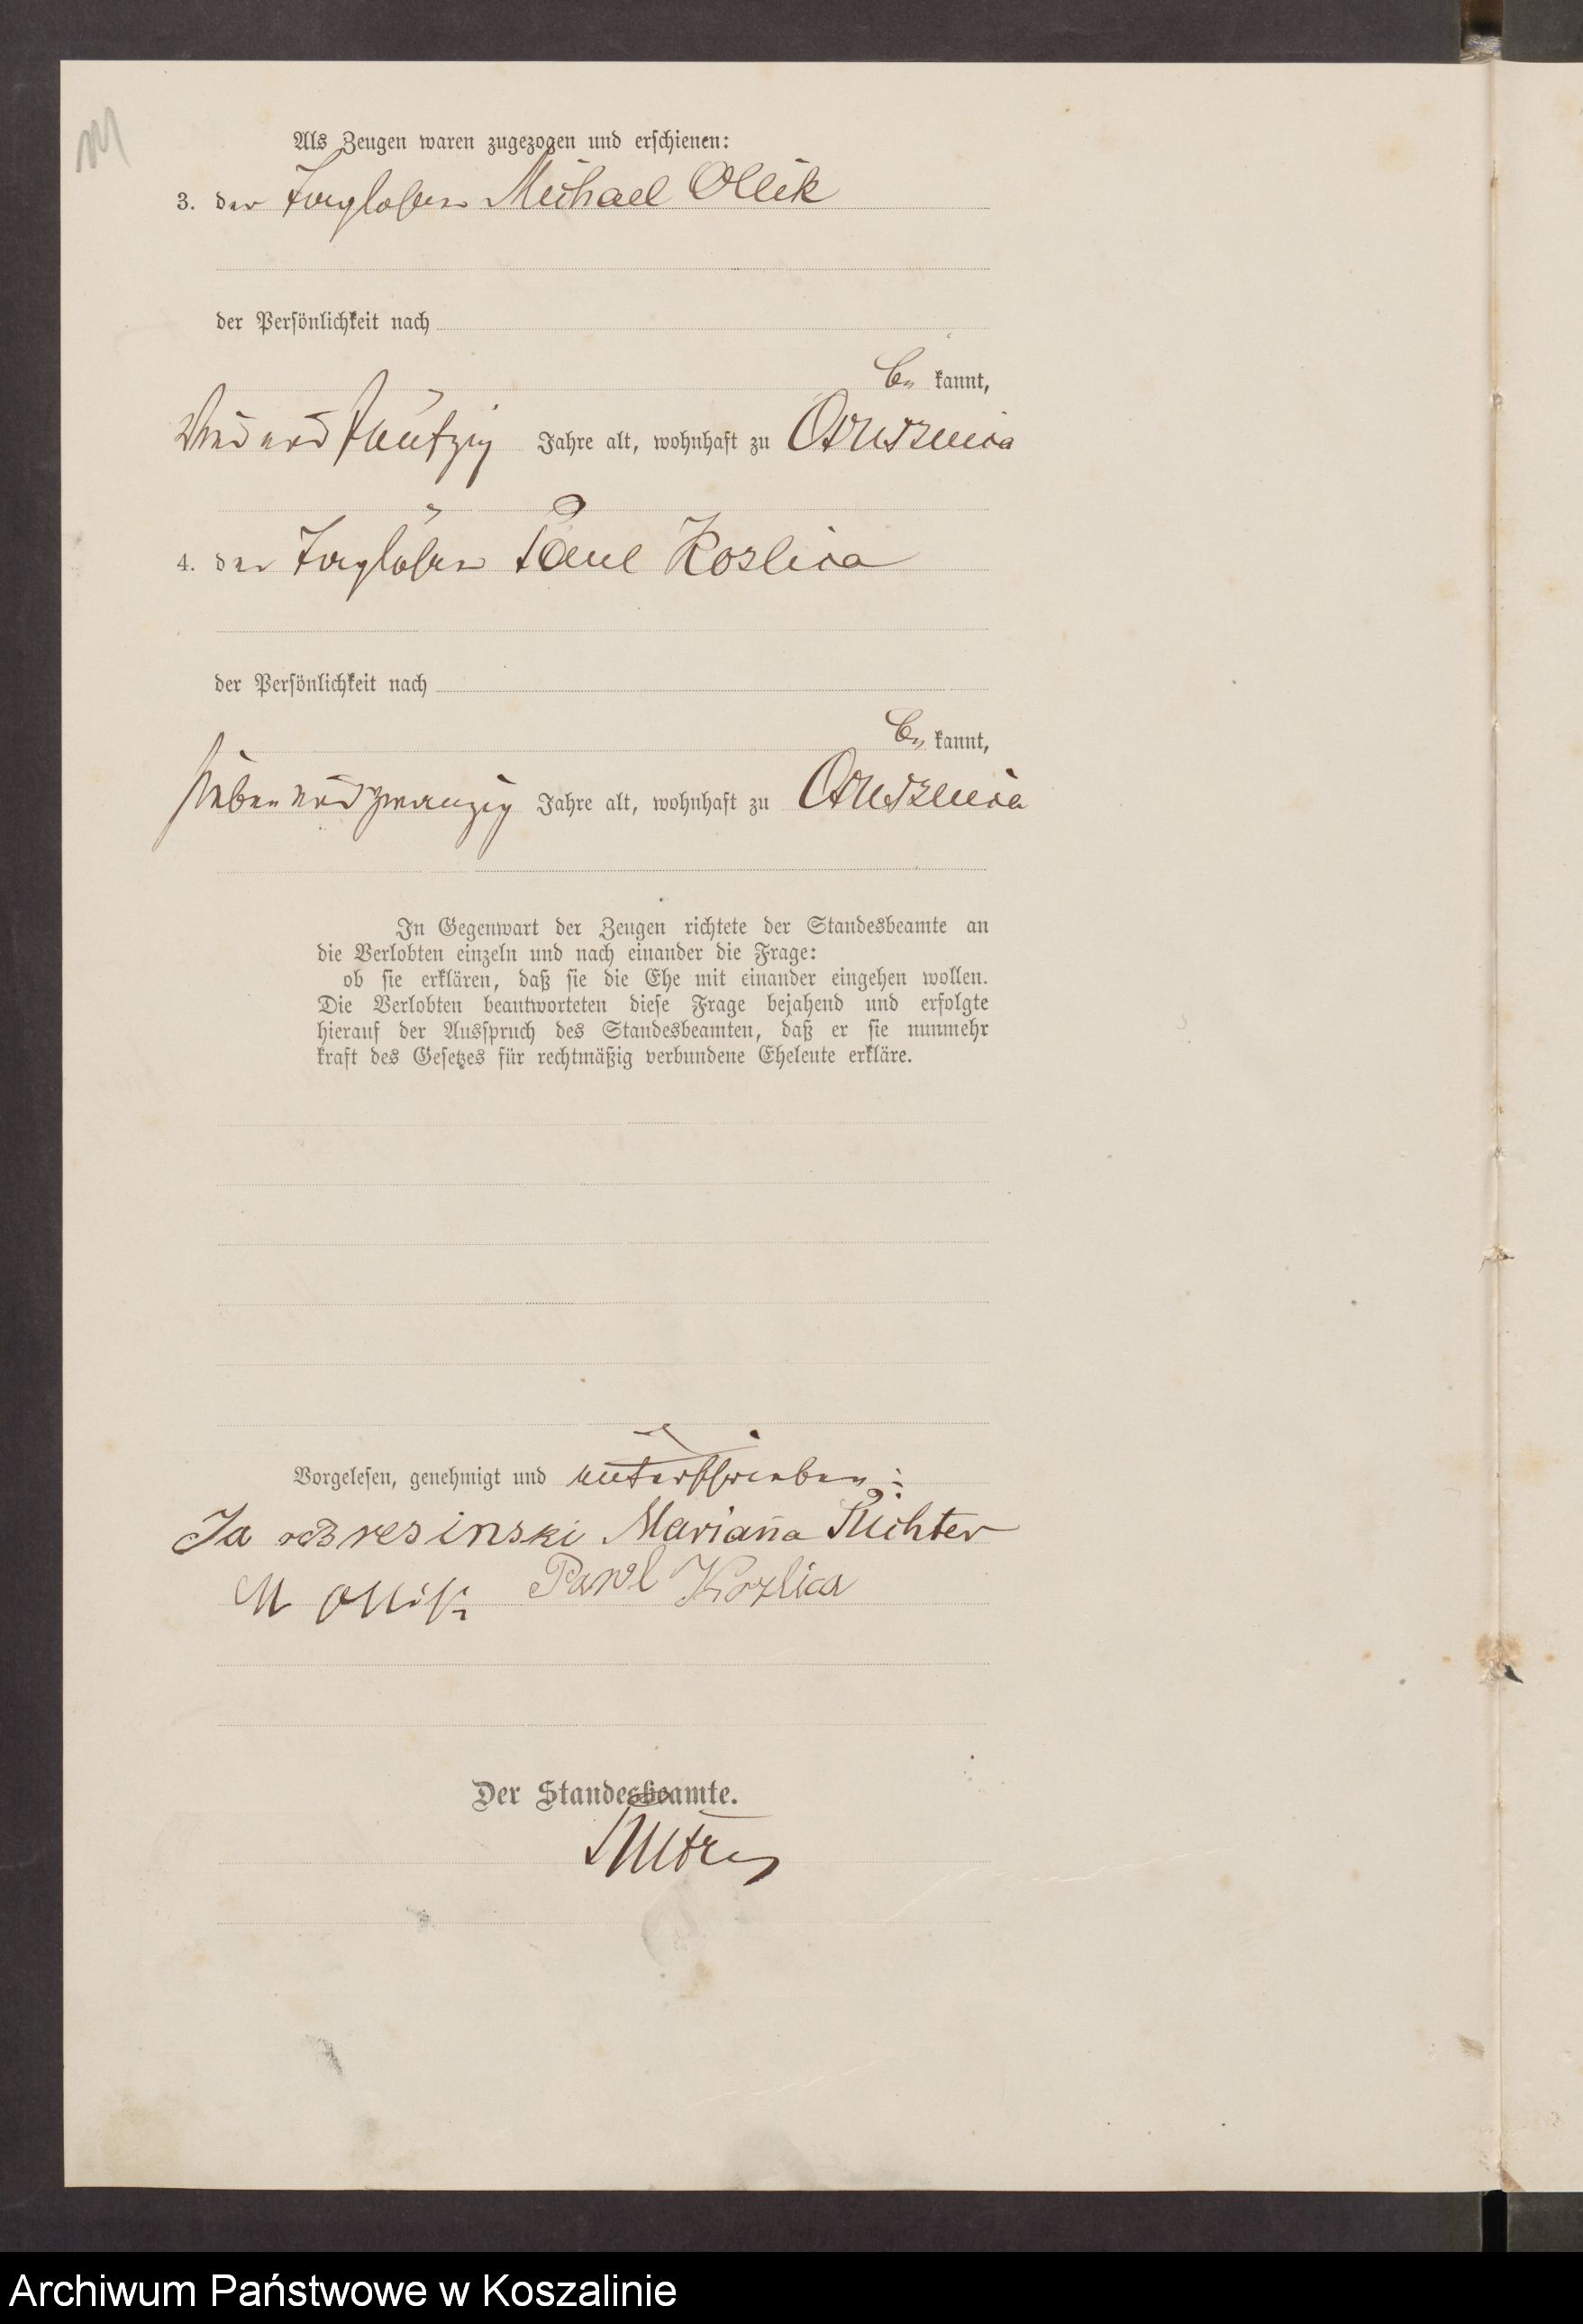 Als Zeugen waren zugezogen und erschienen:
3. der Tagelöhner Michael Ollik
der Persönlichkeit nach
be kannt,
Drei und fünfzig Jahre alt, wohnhaft zu Ostrusznica
4. der Tagelöhner Paul Kozlica
der Persönlichkeit nach
be kannt,
sieben und zwanzig Jahre alt, wohnhaft zu
In Gegenwart der Zeugen richtete der Standesbeamte an
die Verlobten einzeln und nach einander die Frage:
ob sie erklären, daß sie die Ehe mit einander eingehen wollen.
Die Verlobten beantworteten diese Frage bejahend und erfolgte
hierauf der Ausspruch des Standesbeamten, daß er sie nunmehr
kraft des Gesetzes für rechtmäßig verbundene Eheleute erkläre.
Vorgelesen, genehmigt und unterschrieben:
Bresinski Marianna Richter
M Ollik Pawel Kozlica
Der Standesbeamte.
Archiwum Państwowe w Koszalinie